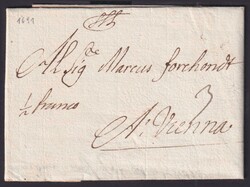 1699
Al Sig.re Marcus forchondt
½ franco 3
A Vienna